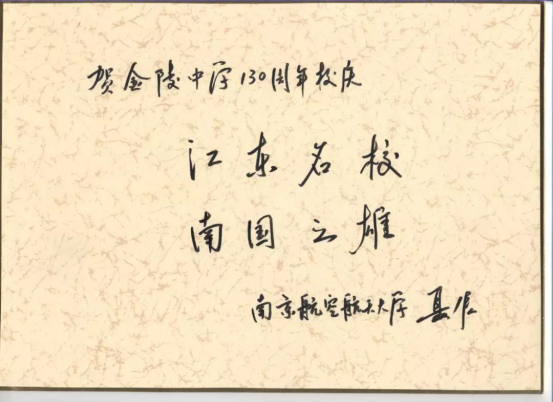 贺金陵中学130周年校庆
江东名校
南国之雄
南京航空航天大学